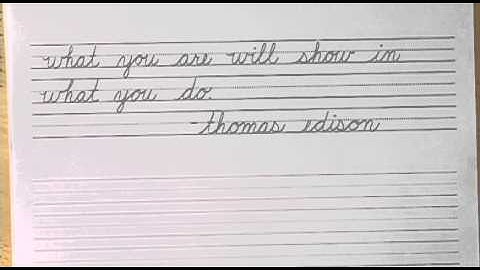 what you are will show in
what you do.
-thomas edison